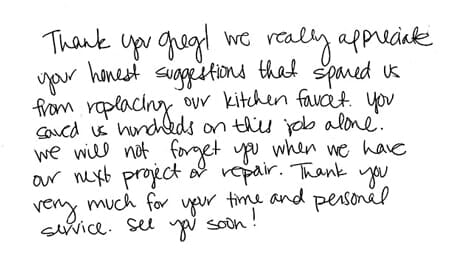 Thank you Greg! we really appreciate
your honest suggestions that spared us
from replacing our kitchen faucet. you
saved us hundreds on this job alone.
we will not forget you when we have
our next project or repair. Thank you
very much for your time and personal
service. see you soon!